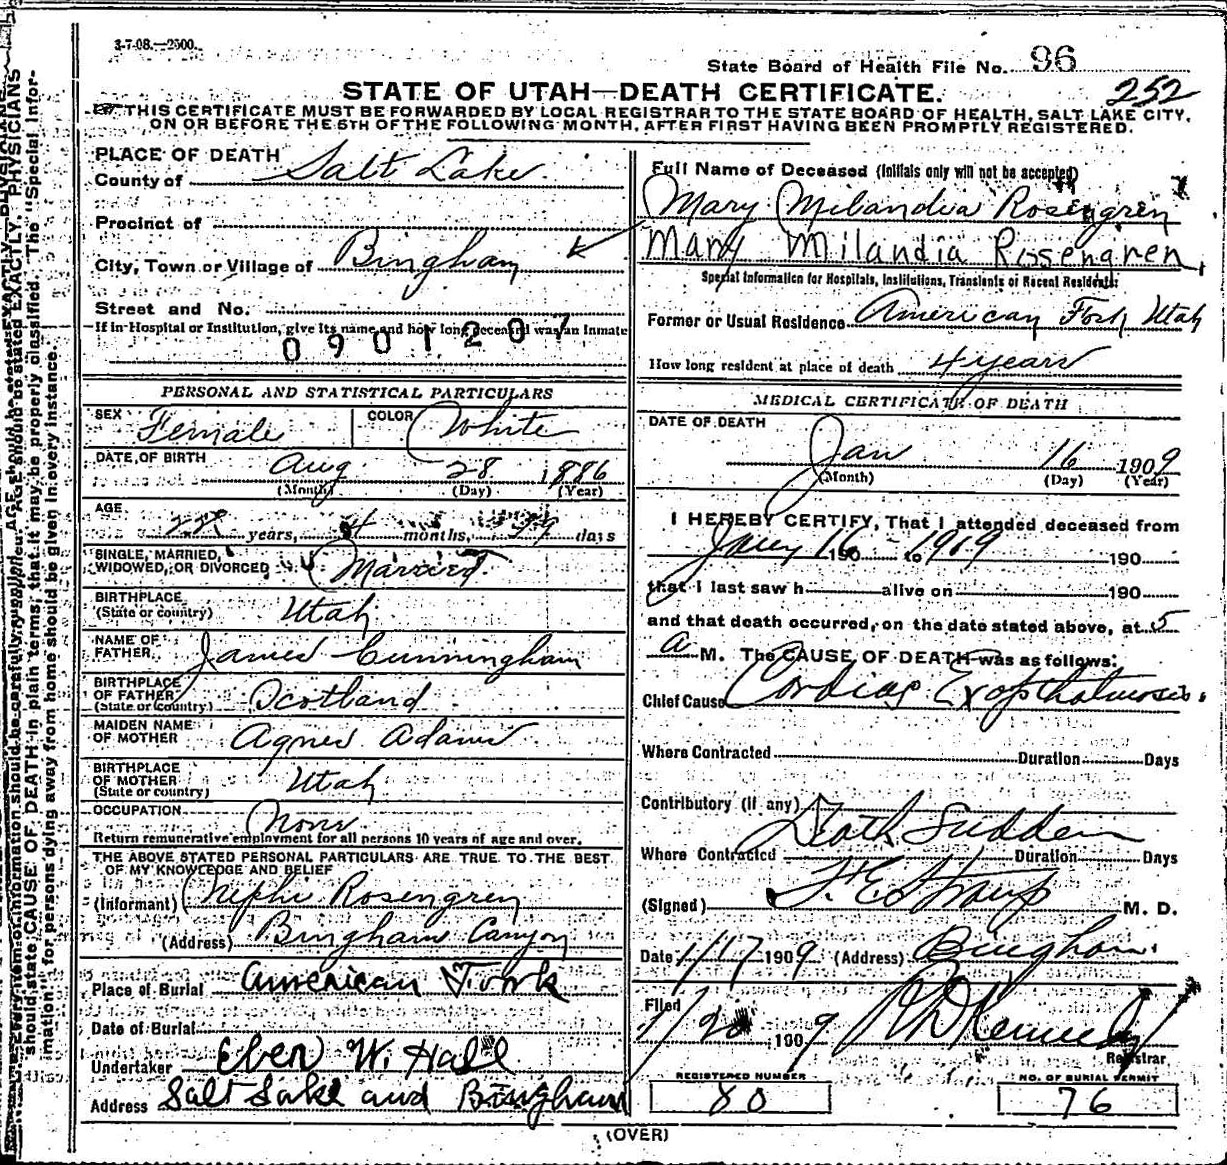 3-7-08.—2500.
State Board of Health File No. 96
252
STATE OF UTAH—DEATH CERTIFICATE.
THIS CERTIFICATE MUST BE FORWARDED BY LOCAL REGISTRAR TO THE STATE BOARD OF HEALTH, SALT LAKE CITY,
ON OR BEFORE THE 5TH OF THE FOLLOWING MONTH, AFTER FIRST HAVING BEEN PROMPTLY REGISTERED.
PLACE OF DEATH
County of Salt Lake
Precinct of
City, Town or Village of Bingham
Street and No.
If in Hospital or Institution, give its name and how long deceased was an Inmate
0901207
PERSONAL AND STATISTICAL PARTICULARS
SEX Female COLOR White
DATE OF BIRTH Aug 28 1886
(Month) (Day) (Year)
AGE
22 years, 4 months, days
SINGLE, MARRIED,
WIDOWED, OR DIVORCED Married
BIRTHPLACE
(State or country) Utah
NAME OF
FATHER James Cunningham
BIRTHPLACE
OF FATHER
(State or Country) Scotland
MAIDEN NAME
OF MOTHER Agnes Adams
BIRTHPLACE
OF MOTHER
(State or country) Utah
OCCUPATION None
Return remunerative employment for all persons 10 years of age and over.
THE ABOVE STATED PERSONAL PARTICULARS ARE TRUE TO THE BEST
OF MY KNOWLEDGE AND BELIEF
(Informant) Nephi Rosengren
(Address) Bingham Canyon
Place of Burial American Fork
Date of Burial
Undertaker Eber W. Hall
Address Salt Lake and Bingham
Full Name of Deceased (Initials only will not be accepted)
Mary Milandia Rosengren
Mary Milandia Rosengren
Special Information for Hospitals, Institutions, Transients or Recent Residents:
Former or Usual Residence American Fork Utah
How long resident at place of death 4 years
MEDICAL CERTIFICATE OF DEATH
DATE OF DEATH
Jan 16 1909
(Month) (Day) (Year)
I HEREBY CERTIFY, That I attended deceased from
Jany 16 190 to 1909 190
that I last saw h alive on 190
and that death occurred, on the date stated above, at 5
a M. The CAUSE OF DEATH was as follows:
Chief Cause Cardiac Exopthalmosis
Where Contracted Duration Days
Contributory (if any)
Death Sudden
Where Contracted Duration Days
(Signed) F. E. Straup M. D.
Date 1/17 1909 (Address) Bingham
Filed
1/20 1909 Registrar
REGISTERED NUMBER
80
NO. OF BURIAL PERMIT
76
(OVER)